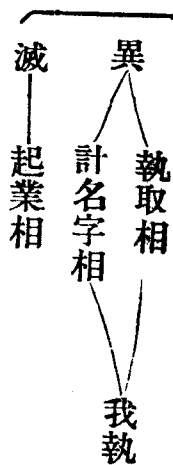 異
執取相
計名字相
我執
滅
起業相